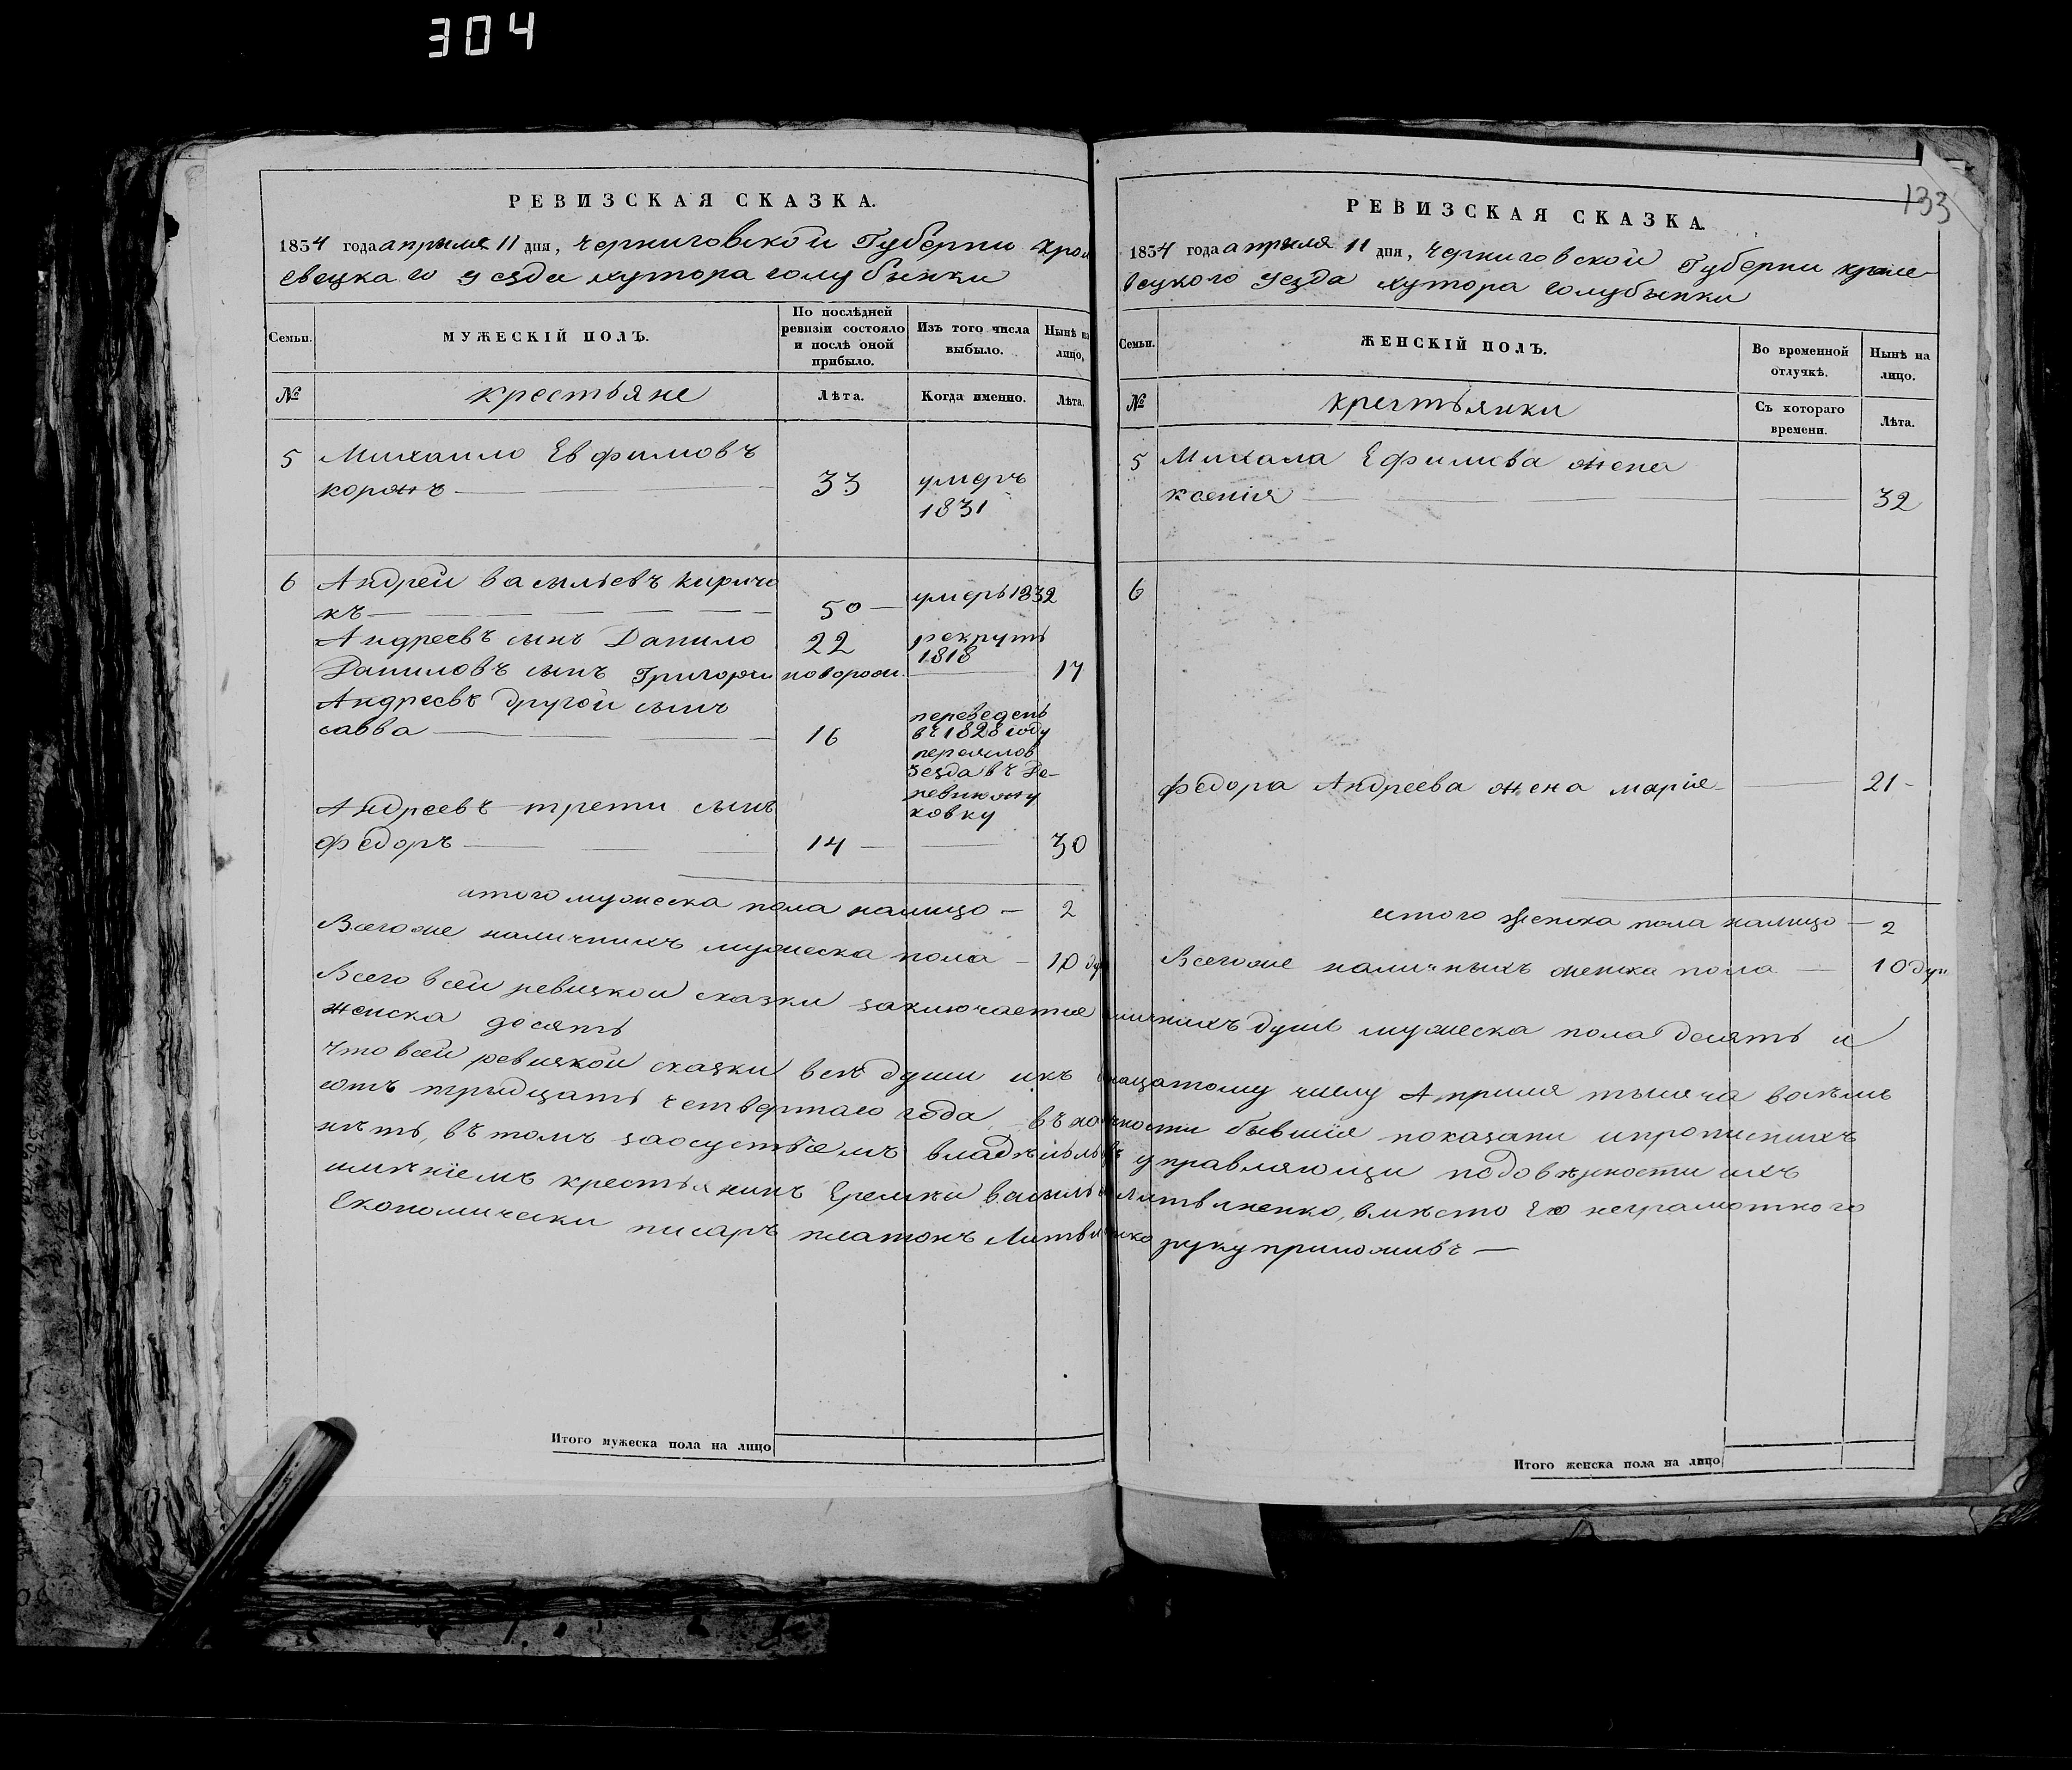 304
РЕВИЗСКАЯ СКАЗКА.
1834 года апрыля 11 дня, черниговской Губерни крол
евецкаго уезда хутора голубынки
Семьи.
МУЖЕСКІЙ ПОЛЪ.
По послѣдней ревизіи состояло и послѣ оной прибыло.
Изъ того числа выбыло.
Нынѣ на лицо,
№
крестьяне
Лѣта.
Когда именно.
Лѣта.
5 Михаило Евфимовъ
коржъ 33 умеръ
1831
6 Андрей васильевъ киричо
къ 50 умеръ 1832
Андреевъ сынъ Данило 22 рекрутъ
1818
Даниловъ сынъ Григори новорож. 17
Андреевъ другой сынъ
савва 16
переведенъ
въ 1828 году
уезда въ де-
ковку
Андреевъ трети сынъ
федоръ 14 30
итого мужеска пола налицо 2
Всегоже наличнихъ мужеска пола 10 ду
РЕВИЗСКАЯ СКАЗКА.
133
1834 года апрыля 11 дня, черниговской Губерни кроле
вецкого уезда хутора голубынки
Семьи.
ЖЕНСКІЙ ПОЛЪ.
Во временной отлучкѣ.
Нынѣ на лицо.
№
крестьянки
Съ котораго времени.
Лѣта.
5 Михала Ефимова жена
ксенія 32
6
федора Андреева жена марія 21
итого женска пола налицо 2
Всегоже наличныхъ женска пола 10 душ
Всего всей ревизкой сказки заключается личнихъ душъ мужеска пола десять и
женска десять
что всей ревизкой сказки всѣ души ихъ надцатому числу Априля тысяча восѣмъ
сотъ трыдцать четвертаго года въ личности бывшія показани ипрописнихъ
нѣтъ, въ томъ заосуствіемъ владѣльцъ управляющи подовѣрности ихъ
имѣніемъ крестьянинъ Еремѣи василь Литвиненко, вмѣсто Его неграмотного
Економически писаръ платонъ Литвиненко руку приложивъ
Итого мужеска пола на лицо
Итого женска пола на лицо